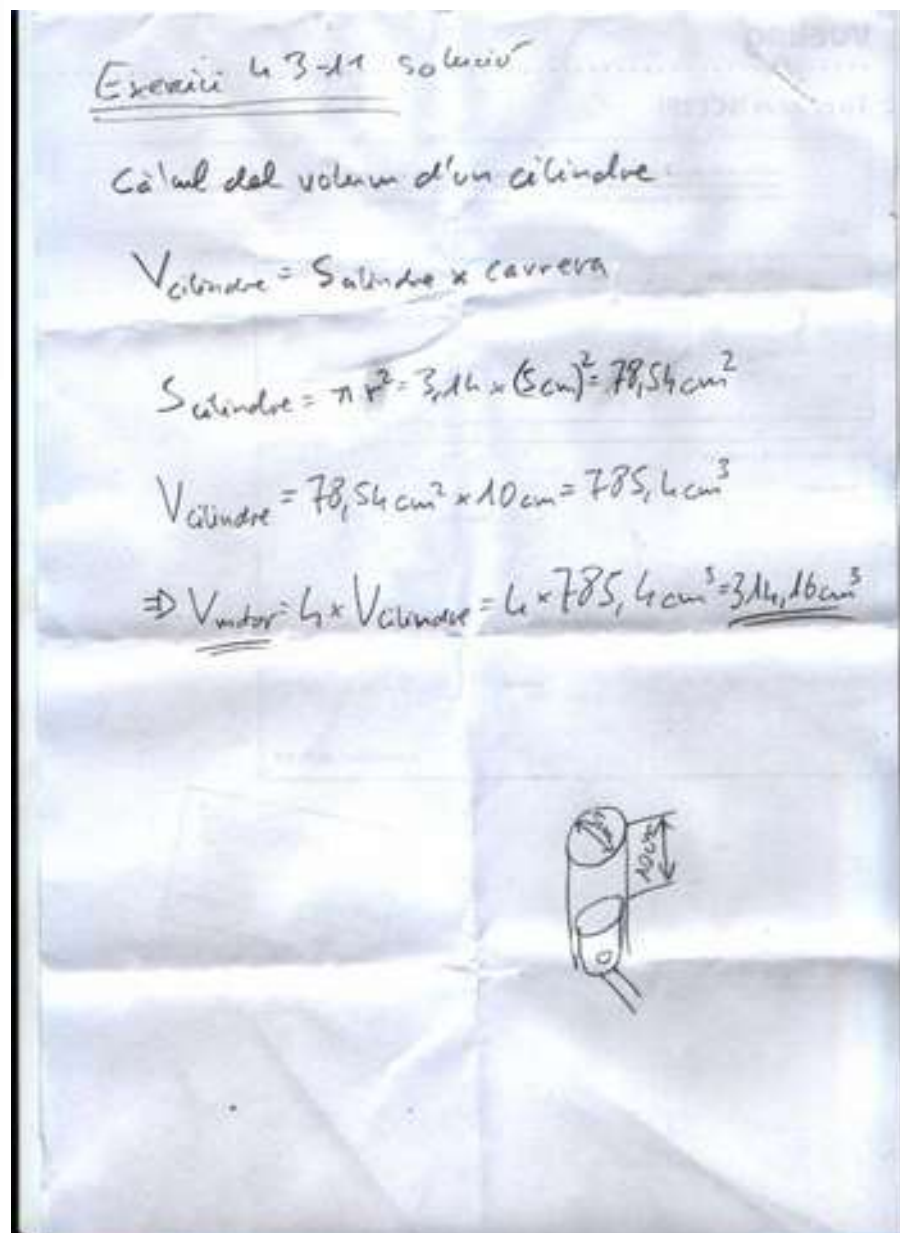 Exercici 43-11 solució
Càlcul del volum d'un cilindre
Vcilindre = Scilindre x carrera
Scilindre = π r² = 3,14 x (5cm)² = 78,54 cm²
Vcilindre = 78,54 cm² x 10 cm = 785,4 cm³
⇒ Vmotor = 4 x Vcilindre = 4 x 785,4 cm³ = 314,16 cm³
10cm